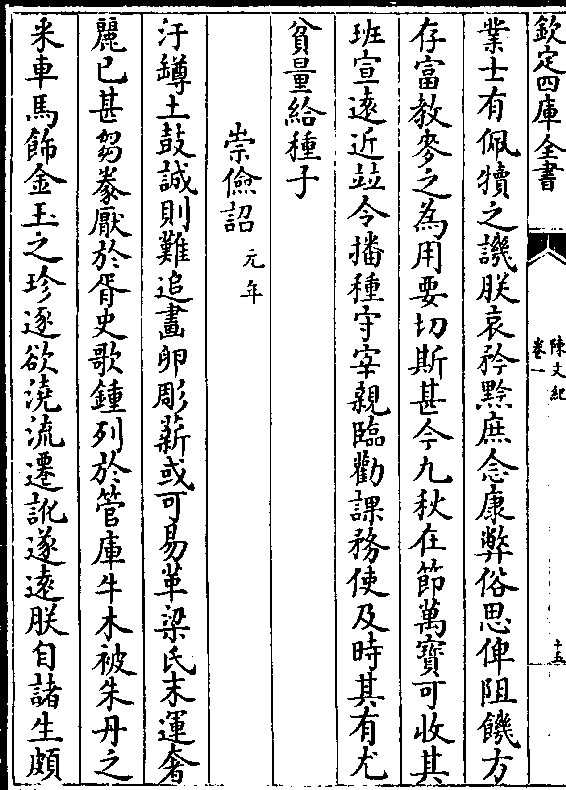 欽定四庫全書
陳文紀
卷一
十五
業士有佩犢之譏朕哀矜黔庶念康弊俗思俾阻饑方
存富教麥之為用要切斯甚今九秋在節萬寶可收其
班宣逺近竝令播種守宰親臨勸課務使及時其有尤
貧量給種子
崇儉詔元年
汙罇土鼓誠則難追畫卵彫薪或可易革梁氏末運奢
麗已甚芻豢厭於胥史歌鍾列於管庫土木被朱丹之
采車馬飾金玉之珍逐欲澆流遷訛遂逺朕自諸生頗